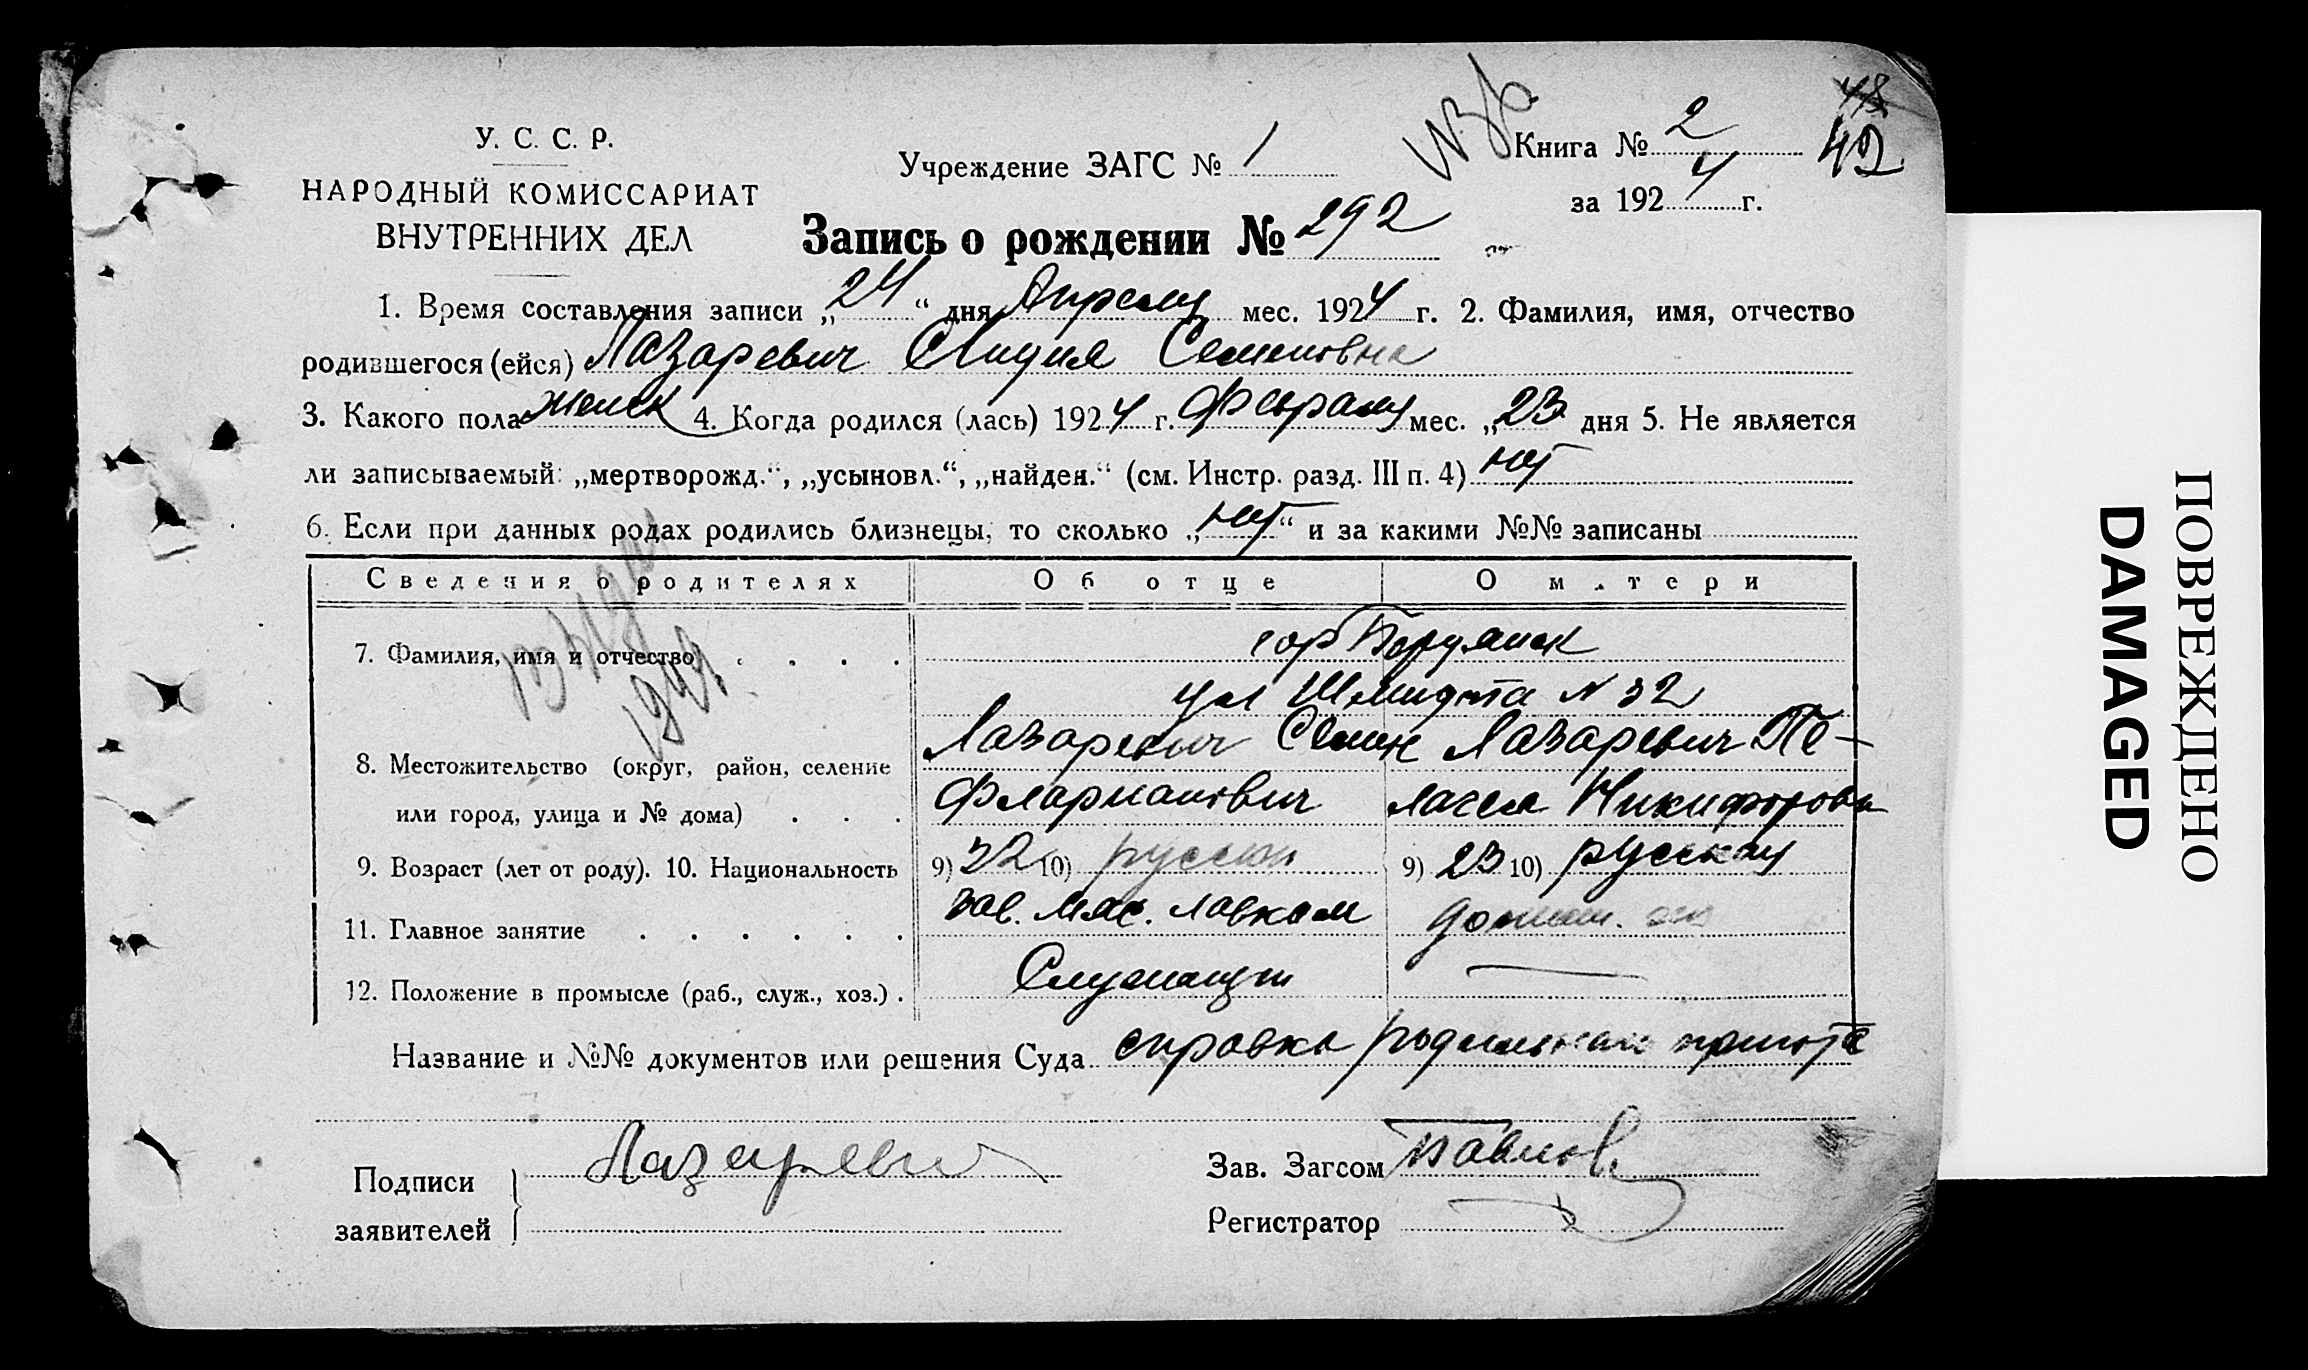 У. С. С. Р.
НАРОДНЫЙ КОМИССАРИАТ
ВНУТРЕННИХ ДЕЛ
Учреждение ЗАГС № 1
Книга № 2
48
42
за 1924 г.
Запись о рождении № 292
1. Время составления записи „24“ дня Апреля мес. 1924 г. 2. Фамилия, имя, отчество
родившегося (ейся) Лазаревич Лидия Семеновна
3. Какого пола женск 4. Когда родился (лась) 1924 г. Февраля мес. „23 дня 5. Не является
ли записываемый: „мертворожд.“, „усыновл.“, „найден.“ (см. Инстр. разд. III п. 4) нет
6. Если при данных родах родились близнецы, то сколько „нет“ и за какими №№ записаны
Сведения о родителях Об отце О матери
7. Фамилия, имя и отчество гор Бердянск
ул Шмидта № 32
Лазаревич Семен Лазаревич Пе-
8. Местожительство (округ, район, селение
или город, улица и № дома) Фларианович лагея Никифоровн
9. Возраст (лет от роду). 10. Национальность 9) 32 10) русский 9) 23 10) русская
11. Главное занятие Зав. Мяс. лавкой домаш. хоз
12. Положение в промысле (раб., служ., хоз.) Служащий —
Название и №№ документов или решения Суда справка родильнаго приюта
Подписи
заявителей
Лазаревич
Зав. Загсом Павлов
Регистратор
ПОВРЕЖДЕНО
DAMAGED